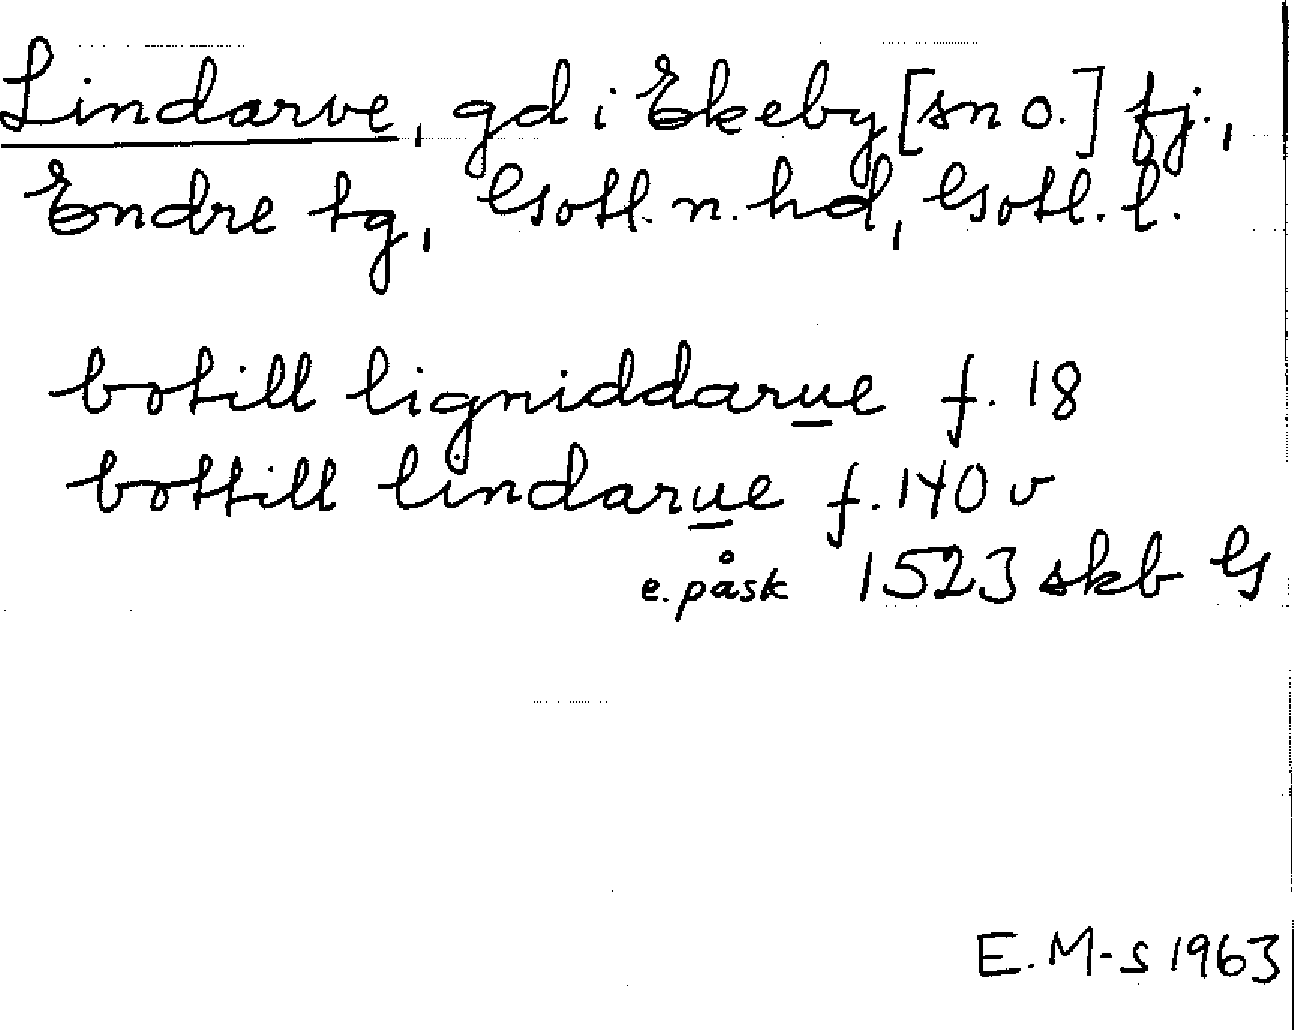 Lindarve, gd i Ekeby [sn o.] fj.,
Endre tg, Gotl. n. hd, Gotl. l.
botill ligniddarue f. 18
bottill lindarue f. 140 v
e. påsk 1523 skb G
E. M-s 1963